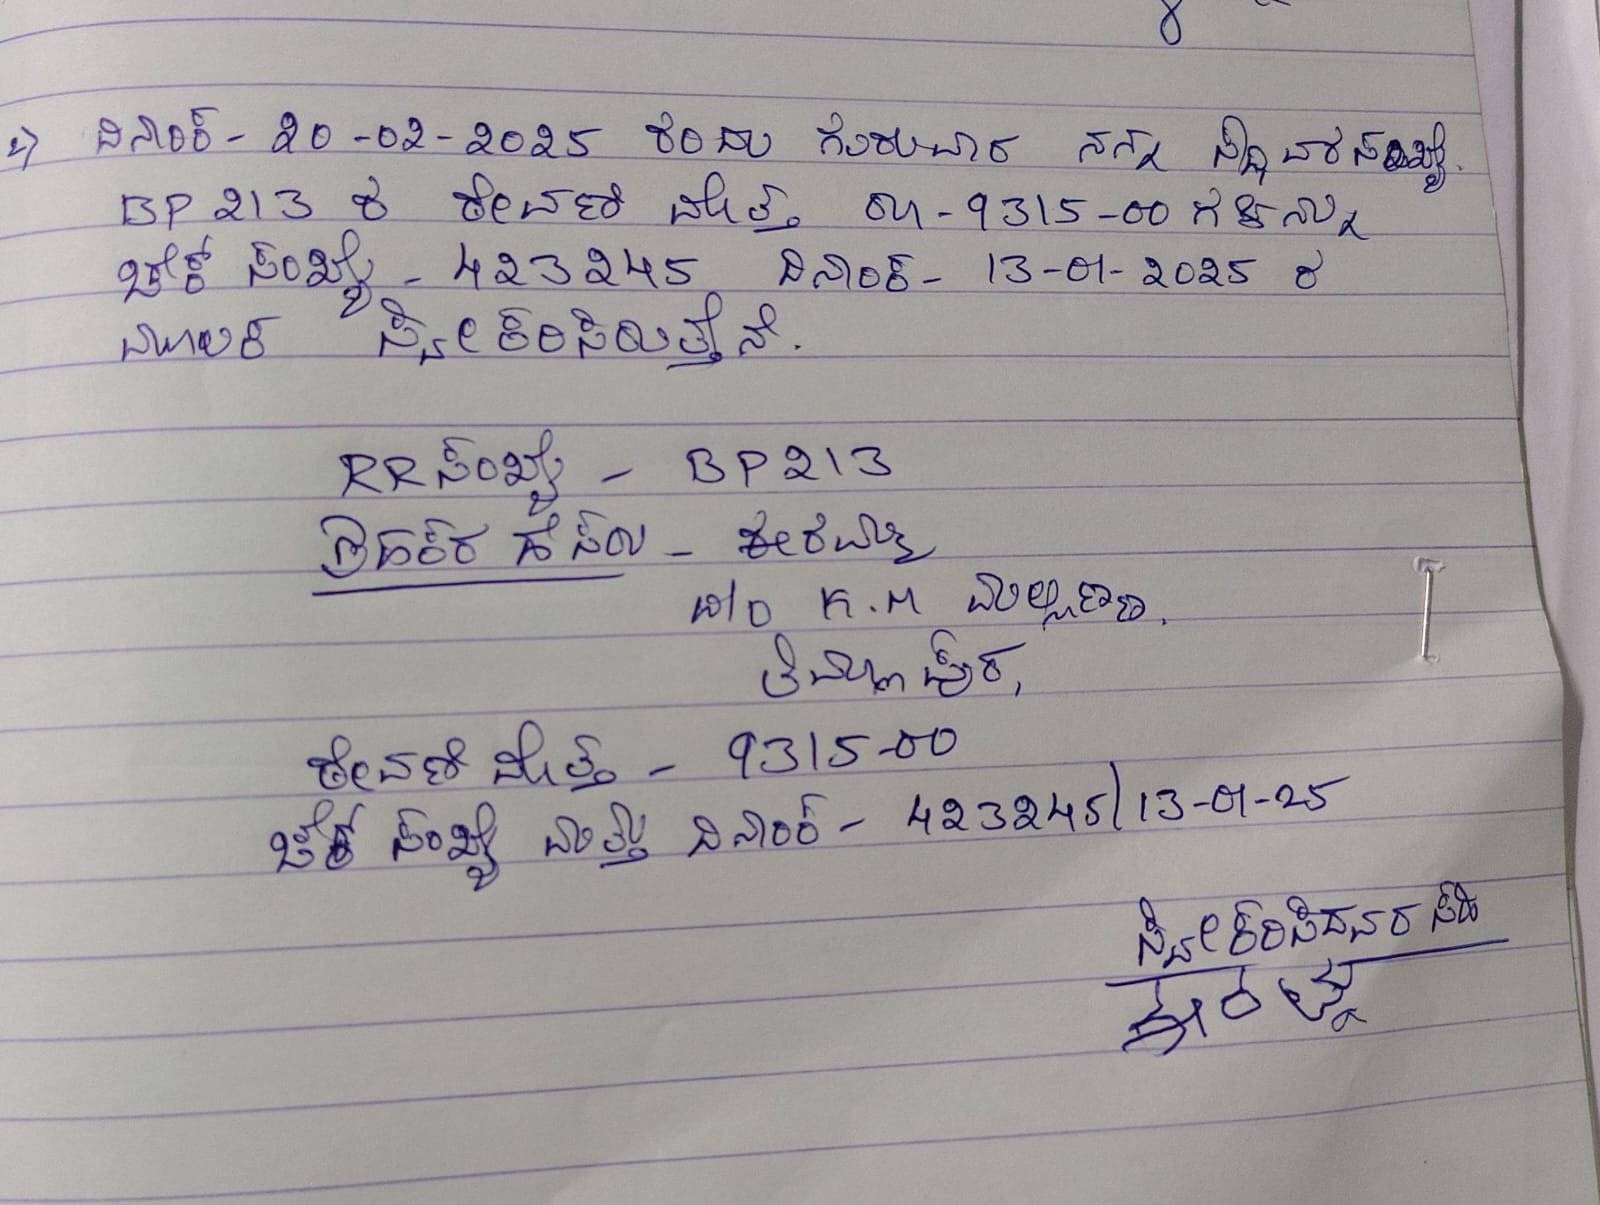 ೭) ದಿನಾಂಕ - 20-02-2025 ರಂದು ಗುರುವಾರ ನನ್ನ ವಿದ್ಯುತ್ ಸಂಖ್ಯೆ.
BP 213 ರ ಠೇವಣಿ ಮೊತ್ತ ರೂ - 9315-00 ಗಳನ್ನು
ಚೆಕ್ ಸಂಖ್ಯೆ - 423245 ದಿನಾಂಕ - 13-01-2025 ರ
ಮೂಲಕ ಸ್ವೀಕರಿಸಿರುತ್ತೇನೆ.
RR ಸಂಖ್ಯೆ - BP 213
ಗ್ರಾಹಕರ ಹೆಸರು -
K.M
ಠೇವಣಿ ಮೊತ್ತ - 9315-00
ಚೆಕ್ ಸಂಖ್ಯೆ ಮತ್ತು ದಿನಾಂಕ - 423245/13-01-25
ಸ್ವೀಕರಿಸಿದವರ ಸಹಿ